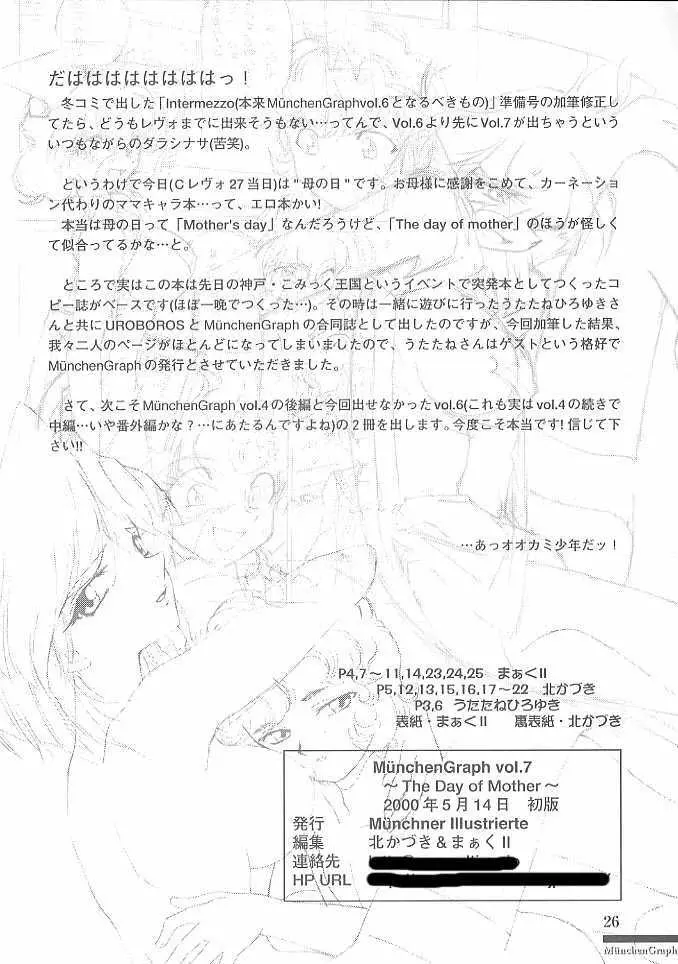 だはははははははっ！
冬コミで出した「Intermezzo(本来MünchenGraphvol.6となるべきもの)」準備号の加筆修正し
てたら、どうもレヴォまでに出来そうもない…ってんで、Vol.6より先にVol.7が出ちゃうという
いつもながらのダラシナサ(苦笑)。
というわけで今日(Cレヴォ27当日)は"母の日"です。お母様に感謝をこめて、カーネーション
代わりのママキャラ本…って、エロ本かい!
本当は母の日って「Mother's day」なんだろうけど、「The day of mother」のほうが怪しく
て似合ってるかな…と。
ところで実はこの本は先日の神戸・こみっく王国というイベントで突発本としてつくったコ
ピー誌がベースです(ほぼ一晩でつくった…)。その時は一緒に遊びに行ったうたたねひろゆきさ
んと共にUROBOROSとMünchenGraphの合同誌として出したのですが、今回加筆した結果、
我々二人のページがほとんどになってしまいましたので、うたたねさんはゲストという格好で
MünchenGraphの発行とさせていただきました。
さて、次こそMünchenGraph vol.4の後編と今回出せなかったvol.6(これも実はvol.4の続きで
中編…いや番外編かな？…にあたるんですよね)の２冊を出します。今度こそ本当です!信じて下
さい!!
…あっオオカミ少年だッ！
P4,7～11,14,23,24,25 まぁくII
P5,12,13,15,16,17～22 北かづき
P3,6 うたたねひろゆき
表紙・まぁくII 裏表紙・北かづき
MünchenGraph vol.7
～The Day of Mother～
2000年5月14日 初版
発行 Münchner Illustrierte
編集 北かづき＆まぁくII
連絡先
HP URL
26
MünchenGraph